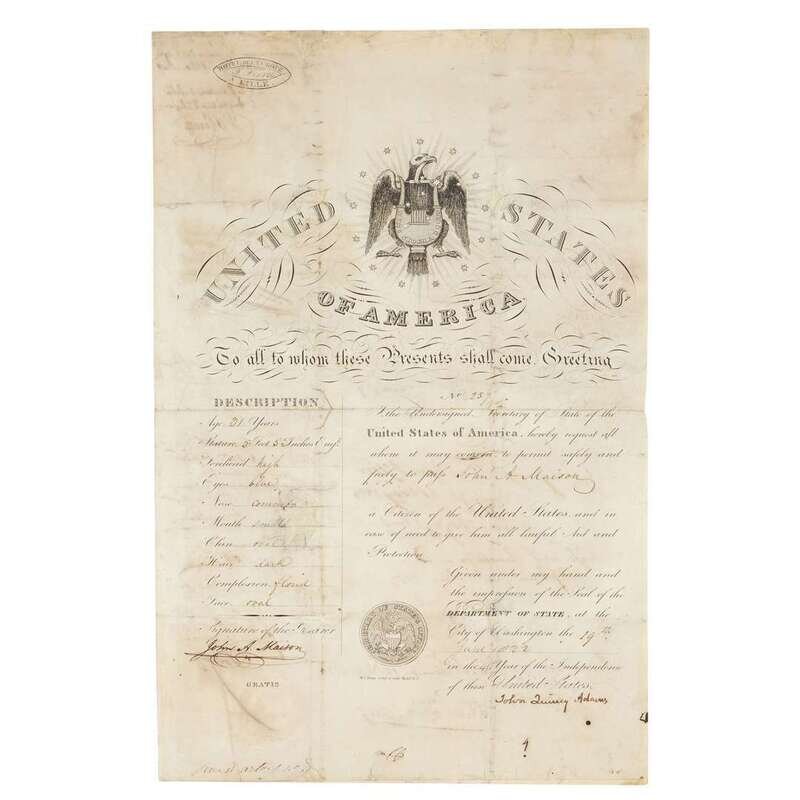 A LILLE
UNITED STATES
OF AMERICA
To all to whom these Presents shall come, Greeting
DESCRIPTION
Age 21 Years
Stature 5 Feet 5 Inches Eng.
Forehead high
Eyes blue
Nose common
Mouth
Chin
Hair dark
Complexion florid
Face oval
Signature of the Bearer
John A. Maison
GRATIS
No. 257
I the Undersigned, Secretary of State of the
United States of America, hereby request all
whom it may concern, to permit safely and
freely to pass John A Maison
a Citizen of the United States, and in
case of need to give him all lawful Aid and
Protection
Given under my hand and
the impression of the Seal of the
DEPARTMENT OF STATE, at the
City of Washington the 19th
June 1822
in the 46 Year of the Independence
of these United States.
John Quincy Adams